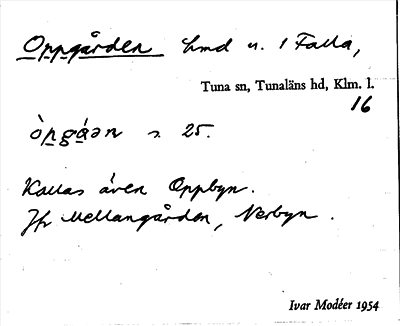 Oppgården hmd u. 1 Falla,
Tuna sn, Tunaläns hd, Klm. l.
16
òpgǻən s. 25.
Kallas även Oppbyn.
Jfr Mellangården, Nerbyn.
Ivar Modéer 1954